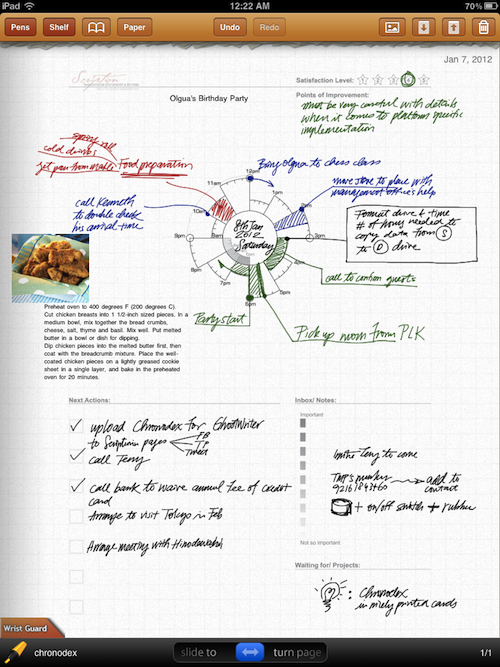 iPad
12:22 AM
70%
Pens
Shelf
Paper
Undo
Redo
Jan 7, 2012
Satisfaction Level:
Olgua's Birthday Party
Points of Improvement:
must be very careful with details
when it comes to platform specific
implementation
spicy
cold drinks
get pan from
Food preparation
Bring olgua to chess class
move stove to place with
management office's help
call Kenneth
to double check
his arrival time
8th Jan
2012
Saturday
12pm
11am
1pm
2pm
10am
9pm
3pm
8pm
4pm
7pm
5pm
6pm
Format drive & time
# of hours needed to
copy data from S
to D drive
call to confirm guests
Party start
Pick up mom from PLK
Preheat oven to 400 degrees F (200 degrees C).
Cut chicken breasts into 1 1/2-inch sized pieces. In a
medium bowl, mix together the bread crumbs,
cheese, salt, thyme and basil. Mix well. Put melted
butter in a bowl or dish for dipping.
Dip chicken pieces into the melted butter first, then
coat with the breadcrumb mixture. Place the well-
coated chicken pieces on a lightly greased cookie
sheet in a single layer, and bake in the preheated
oven for 20 minutes.
Next Actions:
upload Chronodex for GhostWriter
to Scription pages
FB
TP
tweet
call Terry
call bank to waive annual fee of credit
card
Arrange to visit Tokyo in Feb
Arrange meeting with
Inbox/ Notes:
Important
to come
number
add to
contact
+ on/off switch + rubber
Not so important
Waiting for/ Projects:
: Chronodex
in nicely printed cards
Wrist Guard
chronodex
slide to
turn page
1/1